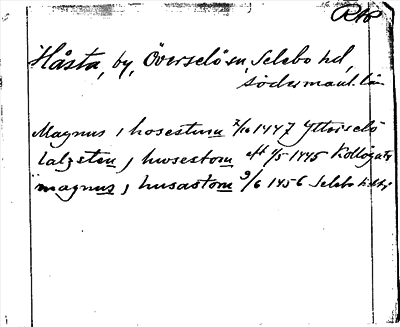 Håsta, by, Överselö sn, Selebo hd,
södermanl. län
Magnus i hosestum 2/10 1447 Ytterselö
lalzsten j hwsestom eft 1/5 1445
magnus j husastom 9/6 1456 Selebo